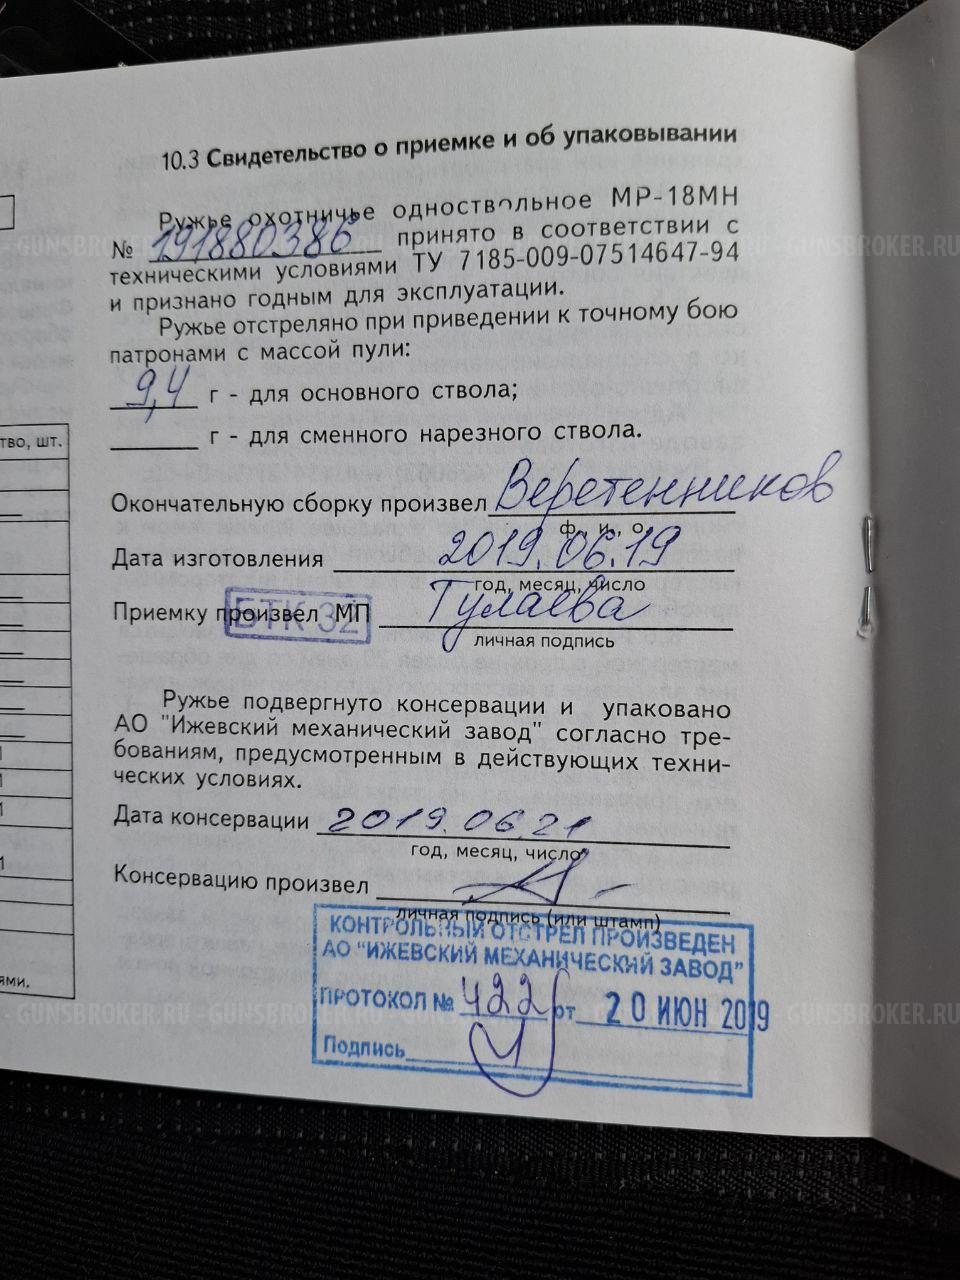 10.3 Свидетельство о приемке и об упаковывании
Ружье охотничье одноствольное МР-18МН
№ 191880386 принято в соответствии с
техническими условиями ТУ 7185-009-07514647-94
и признано годным для эксплуатации.
Ружье отстреляно при приведении к точному бою
патронами с массой пули:
9,4 г - для основного ствола;
г - для сменного нарезного ствола.
Окончательную сборку произвел Веретенников
ф., и., о.
Дата изготовления 2019.06.19
год, месяц, число
Приемку произвел МП Тулаева
БТК 32
личная подпись
Ружье подвергнуто консервации и упаковано
АО "Ижевский механический завод" согласно тре-
бованиям, предусмотренным в действующих техни-
ческих условиях.
Дата консервации 2019.06.21
год, месяц, число
Консервацию произвел
личная подпись (или штамп)
КОНТРОЛЬНЫЙ ОТСТРЕЛ ПРОИЗВЕДЕН
АО "ИЖЕВСКИЙ МЕХАНИЧЕСКИЙ ЗАВОД"
ПРОТОКОЛ № 422 от 20 ИЮН 2019
Подпись
тво, шт.
ями.
GUNSBROKER.RU - GUNSBROKER.RU - GUNSBROKER.RU - GUNSBROKER.RU
GUNSBROKER.RU - GUNSBROKER.RU - GUNSBROKER.RU - GUNSBROKER.RU